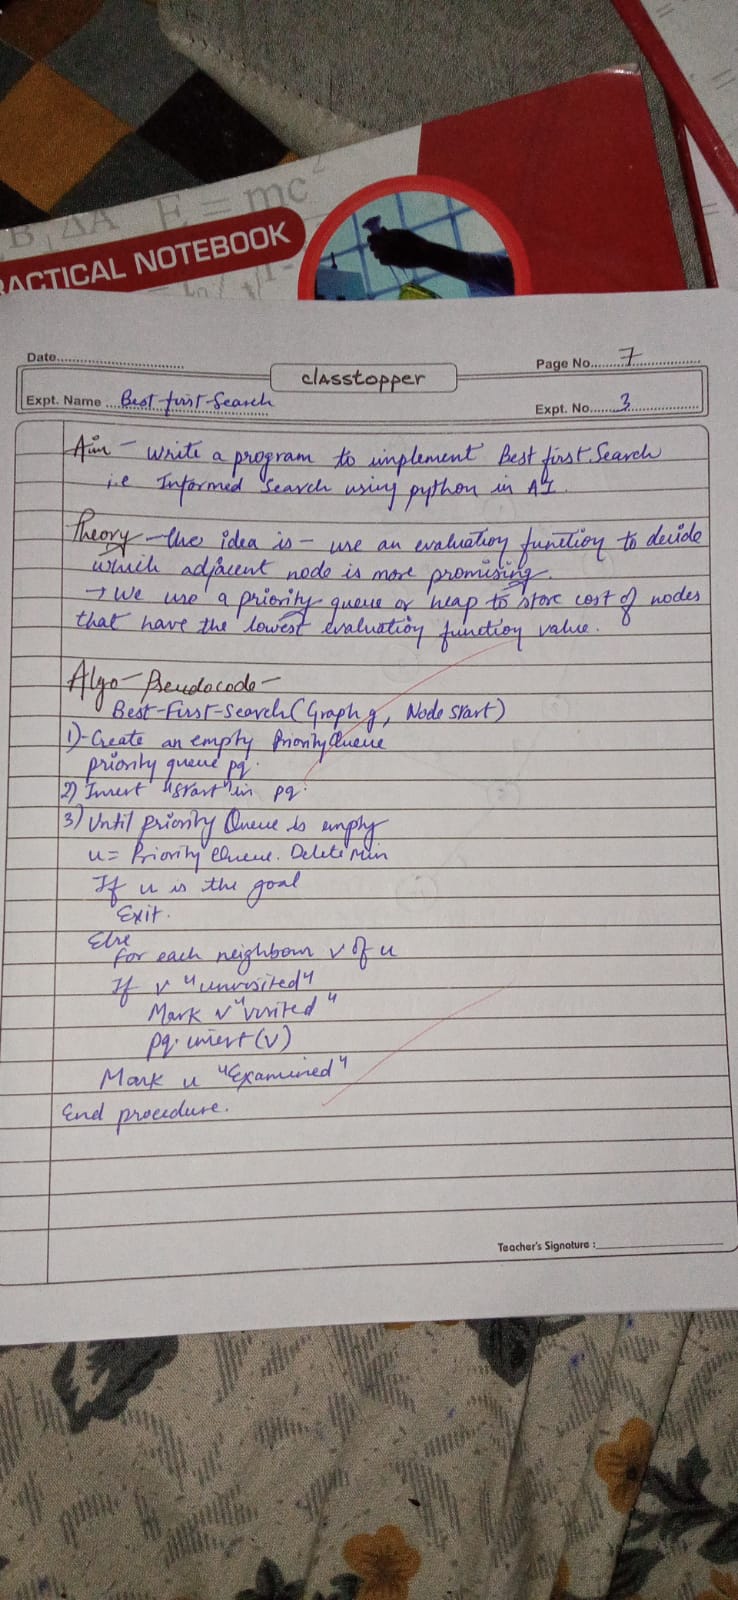 B, ΔA E = mc²
RACTICAL NOTEBOOK
Date
classtopper
Page No. 7
Expt. Name Best first Search
Expt. No. 3
Aim - Write a program to implement Best first Search
i.e Informed Search using python in AI.
Theory - The idea is - use an evaluation function to decide
which adjacent node is more promising.
→ We use a priority queue or heap to store cost of nodes
that have the lowest evaluation function value.
Algo - Pseudocode -
Best-First-Search(Graph g, Node start)
1) - Create an empty PriorityQueue
priority queue pq.
2) Insert "start" in pq.
3) Until priority Queue is empty
u = Priority Queue. Delete Min
If u is the goal
Exit.
Else
for each neighbour v of u
If v "unvisited"
Mark v "visited"
pq. insert (v)
Mark u "Examined"
End procedure.
Teacher's Signature :